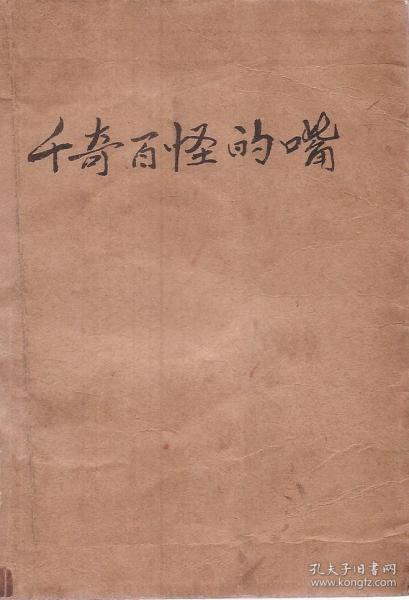 千奇百怪的嘴
孔夫子旧书网
www.kongfz.com